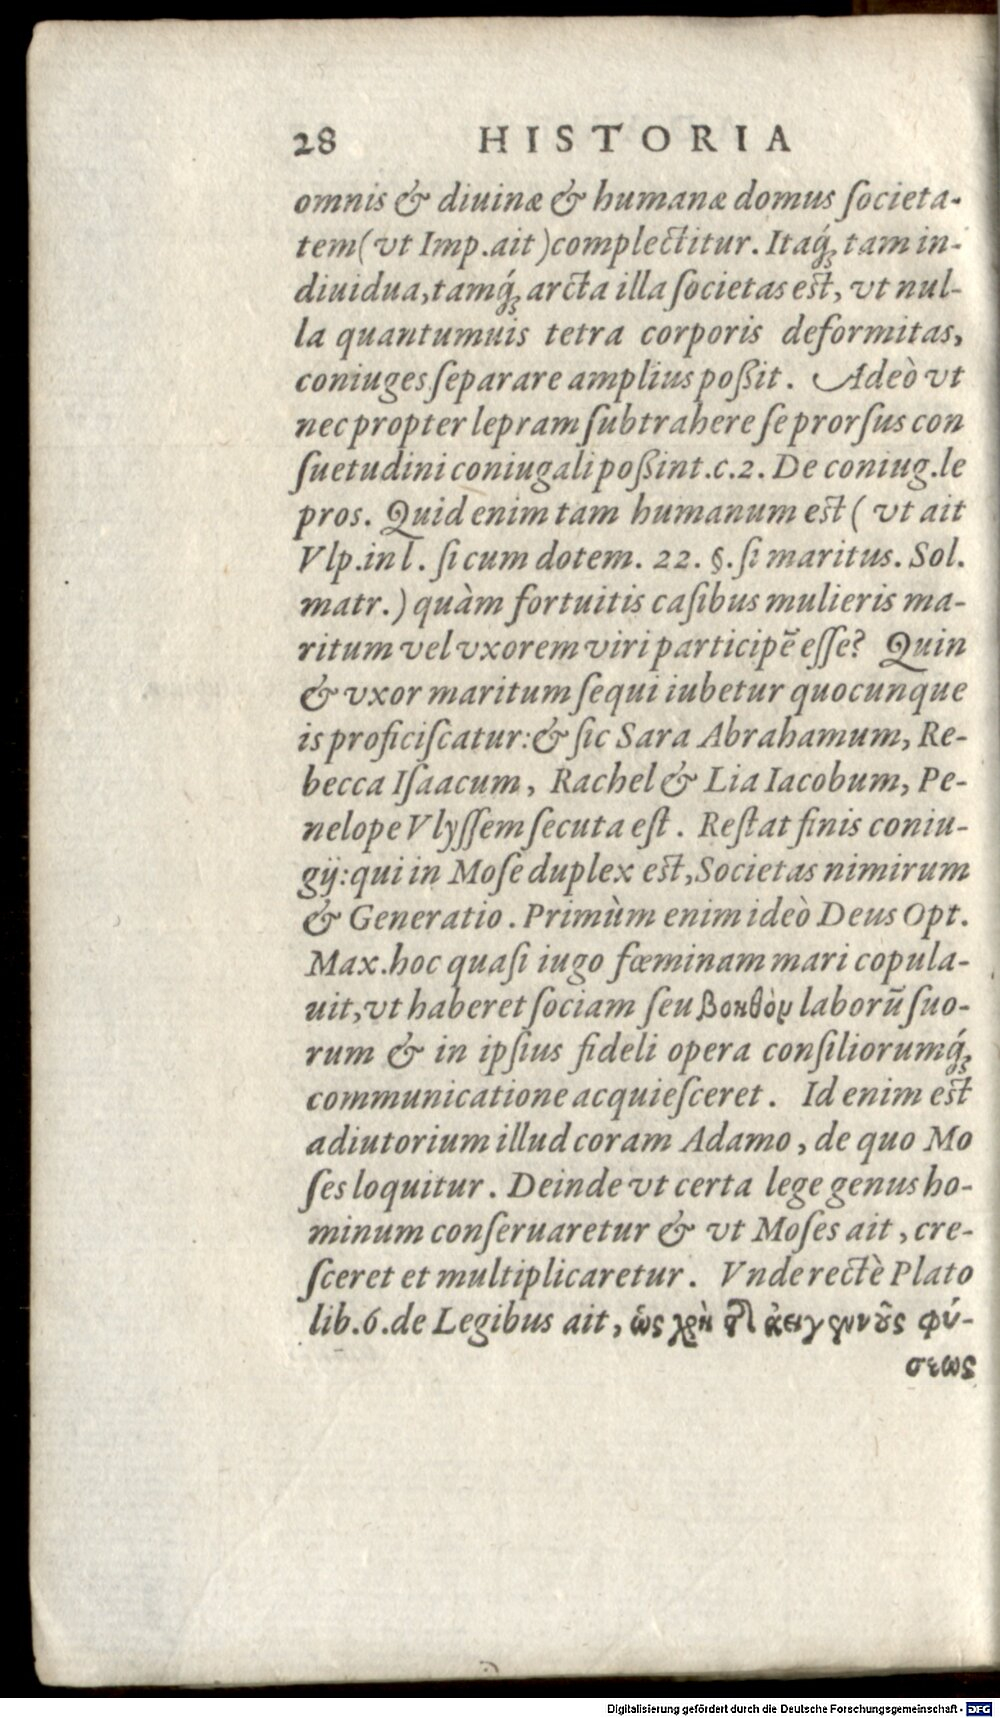 28 HISTORIA
omnis & diuinæ & humanæ domus ſocieta-
tem (vt Imp. ait) complectitur. Itaq́; tam in-
diuidua, tamq́; arcta illa ſocietas est, vt nul-
la quantumuis tetra corporis deformitas,
coniuges ſeparare amplius poßit. Adeò vt
nec propter lepram ſubtrahere ſe prorſus con
ſuetudini coniugali poßint. c. 2. De coniug. le
pros. Quid enim tam humanum est (vt ait
Vlp. in l. ſi cum dotem. 22. §. ſi maritus. Sol.
matr.) quàm fortuitis caſibus mulieris ma-
ritum vel vxorem viri participẽ eſſe? Quin
& vxor maritum ſequi iubetur quocunque
is proficiſcatur: & ſic Sara Abrahamum, Re-
becca Iſaacum, Rachel & Lia Iacobum, Pe-
nelope Vlyſſem ſecuta eſt. Reſtat finis coniu-
gij: qui in Moſe duplex est, Societas nimirum
& Generatio. Primùm enim ideò Deus Opt.
Max. hoc quaſi iugo fœminam mari copula-
uit, vt haberet ſociam ſeu βοηθὸν laborũ ſuo-
rum & in ipſius fideli opera conſiliorumq́;
communicatione acquieſceret. Id enim est
adiutorium illud coram Adamo, de quo Mo
ſes loquitur. Deinde vt certa lege genus ho-
minum conſeruaretur & vt Moſes ait, cre-
ſceret et multiplicaretur. Vnde rectè Plato
lib. 6. de Legibus ait, ὡς χρὴ τῆς ἀειγεννοῦς φύ-
σεως
Digitalisierung gefördert durch die Deutsche Forschungsgemeinschaft - DFG